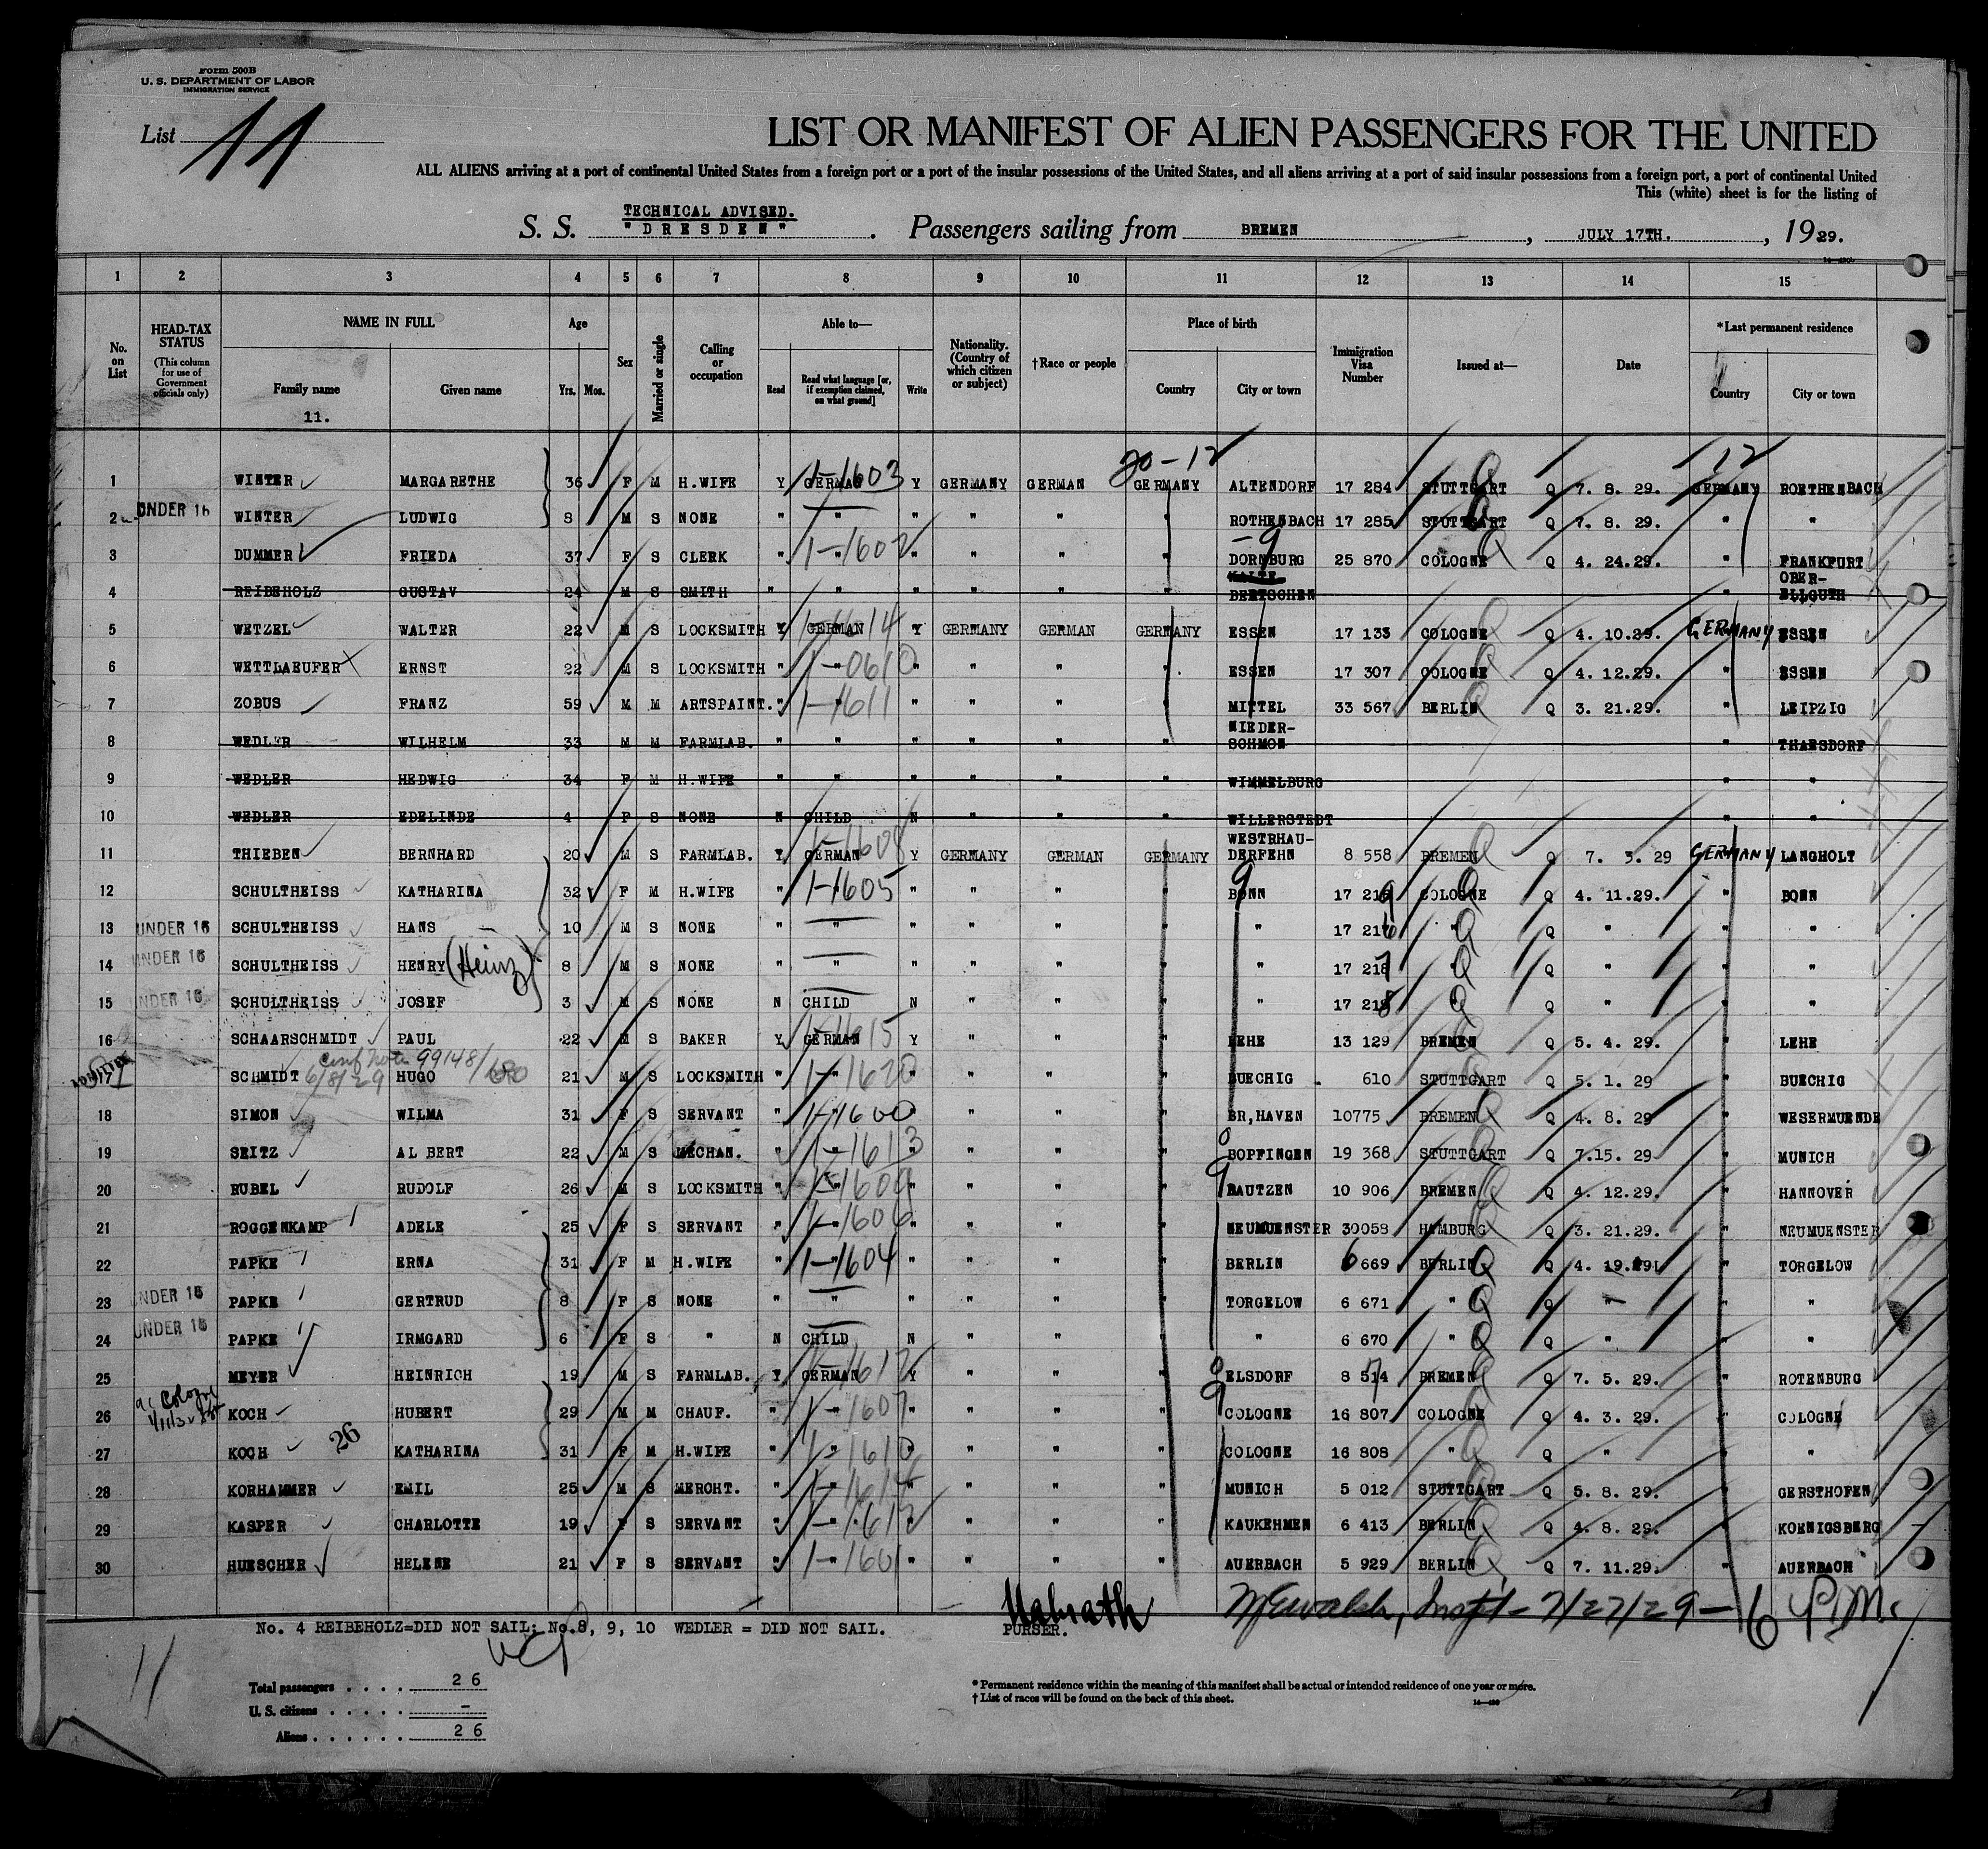 Form 500B
U. S. DEPARTMENT OF LABOR
IMMIGRATION SERVICE
List 11
LIST OR MANIFEST OF ALIEN PASSENGERS FOR THE UNITED
ALL ALIENS arriving at a port of continental United States from a foreign port or a port of the insular possessions of the United States, and all aliens arriving at a port of said insular possessions from a foreign port, a port of continental United
This (white) sheet is for the listing of
TECHNICAL ADVISED.
S. S. "DRESDEN". Passengers sailing from BREMEN, JULY 17TH., 1929.
1 2 3 4 5 6 7 8 9 10 11 12 13 14 15
No. on List
HEAD-TAX STATUS
(This column for use of Government officials only)
NAME IN FULL
Family name
Given name
11.
Age
Yrs. Mos.
Sex
Married or single
Calling or occupation
Able to—
Read
Read what language [or, if exemption claimed, on what ground]
Write
Nationality. (Country of which citizen or subject)
†Race or people
Place of birth
Country
City or town
Immigration Visa Number
Issued at—
Date
*Last permanent residence
Country
City or town
20-12 12
1 WINTER MARGARETHE 36 F M H.WIFE Y GERMAN 1-1603 Y GERMANY GERMAN GERMANY ALTENDORF 17 284 STUTTGART Q 7. 8. 29. GERMANY ROETHENBACH
2 UNDER 16 WINTER LUDWIG 8 M S NONE " " " " " " ROTHENBACH 17 285 STUTTGART Q 7. 8. 29. " "
3 DUMMER FRIEDA 37 F S CLERK " " 1-1602 " " " " DORNBURG 25 870 COLOGNE Q 4. 24.29. " FRANKFURT
4 REIBEHOLZ GUSTAV 24 M S SMITH " " " " " " BENTSCHEN " OBER-ELLGUTH
5 WETZEL WALTER 22 M S LOCKSMITH Y GERMAN Y GERMANY GERMAN GERMANY ESSEN 17 133 COLOGNE Q 4. 10.29. GERMANY ESSEN
6 WETTLAEUFER ERNST 22 M S LOCKSMITH " " " " " " ESSEN 17 307 COLOGNE Q 4. 12.29. " ESSEN
7 ZOBUS FRANZ 59 M M ARTSPAINT. " 1-1611 " " " " MITTEL 33 567 BERLIN Q 3. 21.29. " LEIPZIG
8 WEDLER WILHELM 33 M M FARMLAB. " " " " " " NIEDER-SCHMON " THAESDORF
9 WEDLER HEDWIG 34 F M H.WIFE " " " " " " WIMMELBURG " "
10 WEDLER EDELINDE 4 F S NONE N CHILD N " " " WILLERSTEDT " "
11 THIEBEN BERNHARD 20 M S FARMLAB. Y GERMAN 1-1608 Y GERMANY GERMAN GERMANY WESTRHAU-DERFEHN 8 558 BREMEN Q 7. 3. 29 GERMANY LANGHOLT
12 SCHULTHEISS KATHARINA 32 F M H.WIFE " 1-1605 " " " " BONN 17 219 COLOGNE Q 4. 11.29. " BONN
13 UNDER 16 SCHULTHEISS HANS 10 M S NONE " " " " " " " 17 216 " Q " " "
14 UNDER 16 SCHULTHEISS HENRY (Heinz) 8 M S NONE " " " " " " " 17 217 Q " " "
15 UNDER 16 SCHULTHEISS JOSEF 3 M S NONE N CHILD N " " " " 17 218 Q " " "
16 SCHAARSCHMIDT PAUL 22 M S BAKER Y GERMAN 1-1615 Y " " " LEHE 13 129 BREMEN Q 5. 4. 29. " LEHE
99148/
ADMITTED 17 SCHMIDT 6/8/29 HUGO 21 M S LOCKSMITH " 1-1620 " " " " BUECHIG 610 STUTTGART Q 5. 1. 29 " BUECHIG
18 SIMON WILMA 31 F S SERVANT " 1-1600 " " " " BR,HAVEN 10775 BREMEN Q 4. 8. 29 " WESERMUENDE
19 SEITZ AL BERT 22 M S MECHAN. " 1-1613 " " " " BOPFINGEN 19 368 STUTTGART Q 7.15. 29 " MUNICH
20 RUBEL RUDOLF 26 M S LOCKSMITH " 1-1609 " " " " BAUTZEN 10 906 BREMEN Q 4. 12.29. " HANNOVER
21 ROGGENKAMP ADELE 25 F S SERVANT " 1-1606 " " " " NEUMUENSTER 30058 HAMBURG Q 3. 21.29. " NEUMUENSTER
22 PAPKE ERNA 31 F M H.WIFE " 1-1604 " " " " BERLIN 6 669 BERLIN Q 4. 19.29 " TORGELOW
23 UNDER 16 PAPKE GERTRUD 8 F S NONE " " " " " " TORGELOW 6 671 " Q " " "
24 UNDER 16 PAPKE IRMGARD 6 F S " N CHILD N " " " " 6 670 " Q " " "
25 MEYER HEINRICH 19 M S FARMLAB. Y GERMAN Y " " " ELSDORF 8 574 BREMEN Q 7. 5. 29. " ROTENBURG
26 Cologne KOCH HUBERT 29 M M CHAUF. " 1-1607 " " " " COLOGNE 16 807 COLOGNE Q 4. 3. 29. " COLOGNE
27 KOCH 26 KATHARINA 31 F M H.WIFE " 1-1610 " " " " COLOGNE 16 808 " Q " " "
28 KORHAMMER EMIL 25 M S MERCHT. " " " " " MUNICH 5 012 STUTTGART Q 5. 8. 29. " GERSTHOFEN
29 KASPER CHARLOTTE 19 F S SERVANT " 1-1612 " " " " KAUKEHMEN 6 413 BERLIN Q 4. 8. 29. " KOENIGSBERG
30 HUESCHER HELENE 21 F S SERVANT " 1-1601 " " " " AUERBACH 5 929 BERLIN Q 7. 11.29. " AUERBACH
7/27/29 - 6 P.M.
No. 4 REIBEHOLZ=DID NOT SAIL; No.8, 9, 10 WEDLER = DID NOT SAIL. PURSER.
11
Total passengers . . . . 26
U. S. citizens . . . . . -
Aliens . . . . . . 26
* Permanent residence within the meaning of this manifest shall be actual or intended residence of one year or more.
† List of races will be found on the back of this sheet.